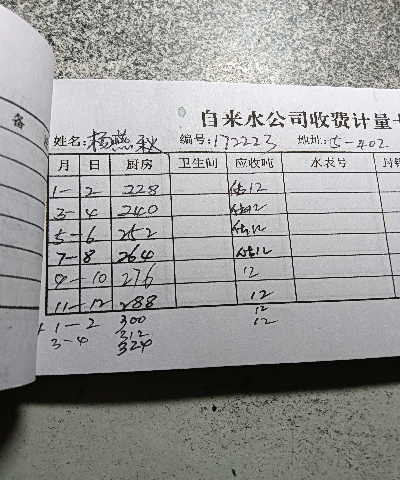 备
自来水公司收费计量卡
姓名:杨燕秋 编号:172223 地址:5-402
月 日 厨房 卫生间 应收吨 水表号
1-2 228 估12
3-4 240 估12
5-6 252 估12
7-8 264 估12
9-10 276 12
11-12 288 12
1-2 300 12
3-4 212 12
324